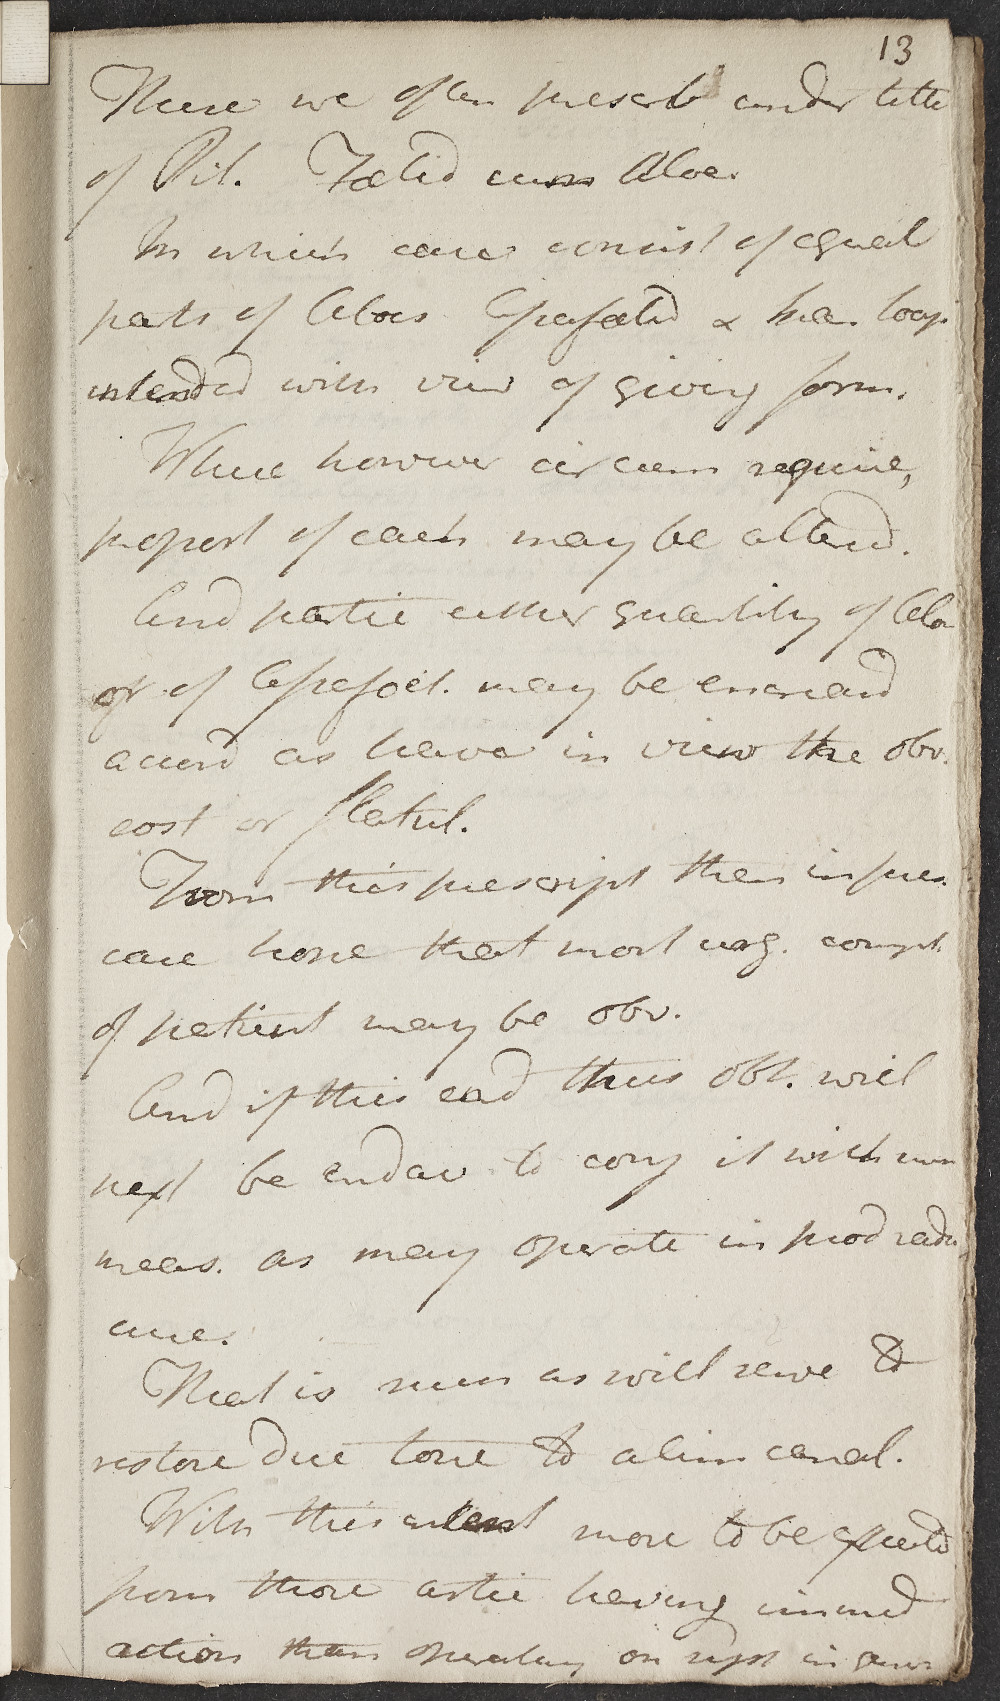 13
These we often prescrib under title
of Pil. Fœtid cum Aloe.
In which case consist of equal
parts of Aloes Assafœtid & hea. soap
intended with view of giving form.
Where however circum require,
proport of each may be altered.
And partic either quantity of Aloe
or of Assafoet. may be encreasd
accord as have in view the obv.
cost or flatul.
From this prescript then in pres.
case hope that most urg. compt.
of patient may be obv.
And if this end thus obt. will
next be endeav to conj it with such
meas. as may operate in prod radic
cure.
That is such as will serve to
restore due tone to alim canal.
With this intent more to be expectd
from those artic having immed
action than operating on syst in gener